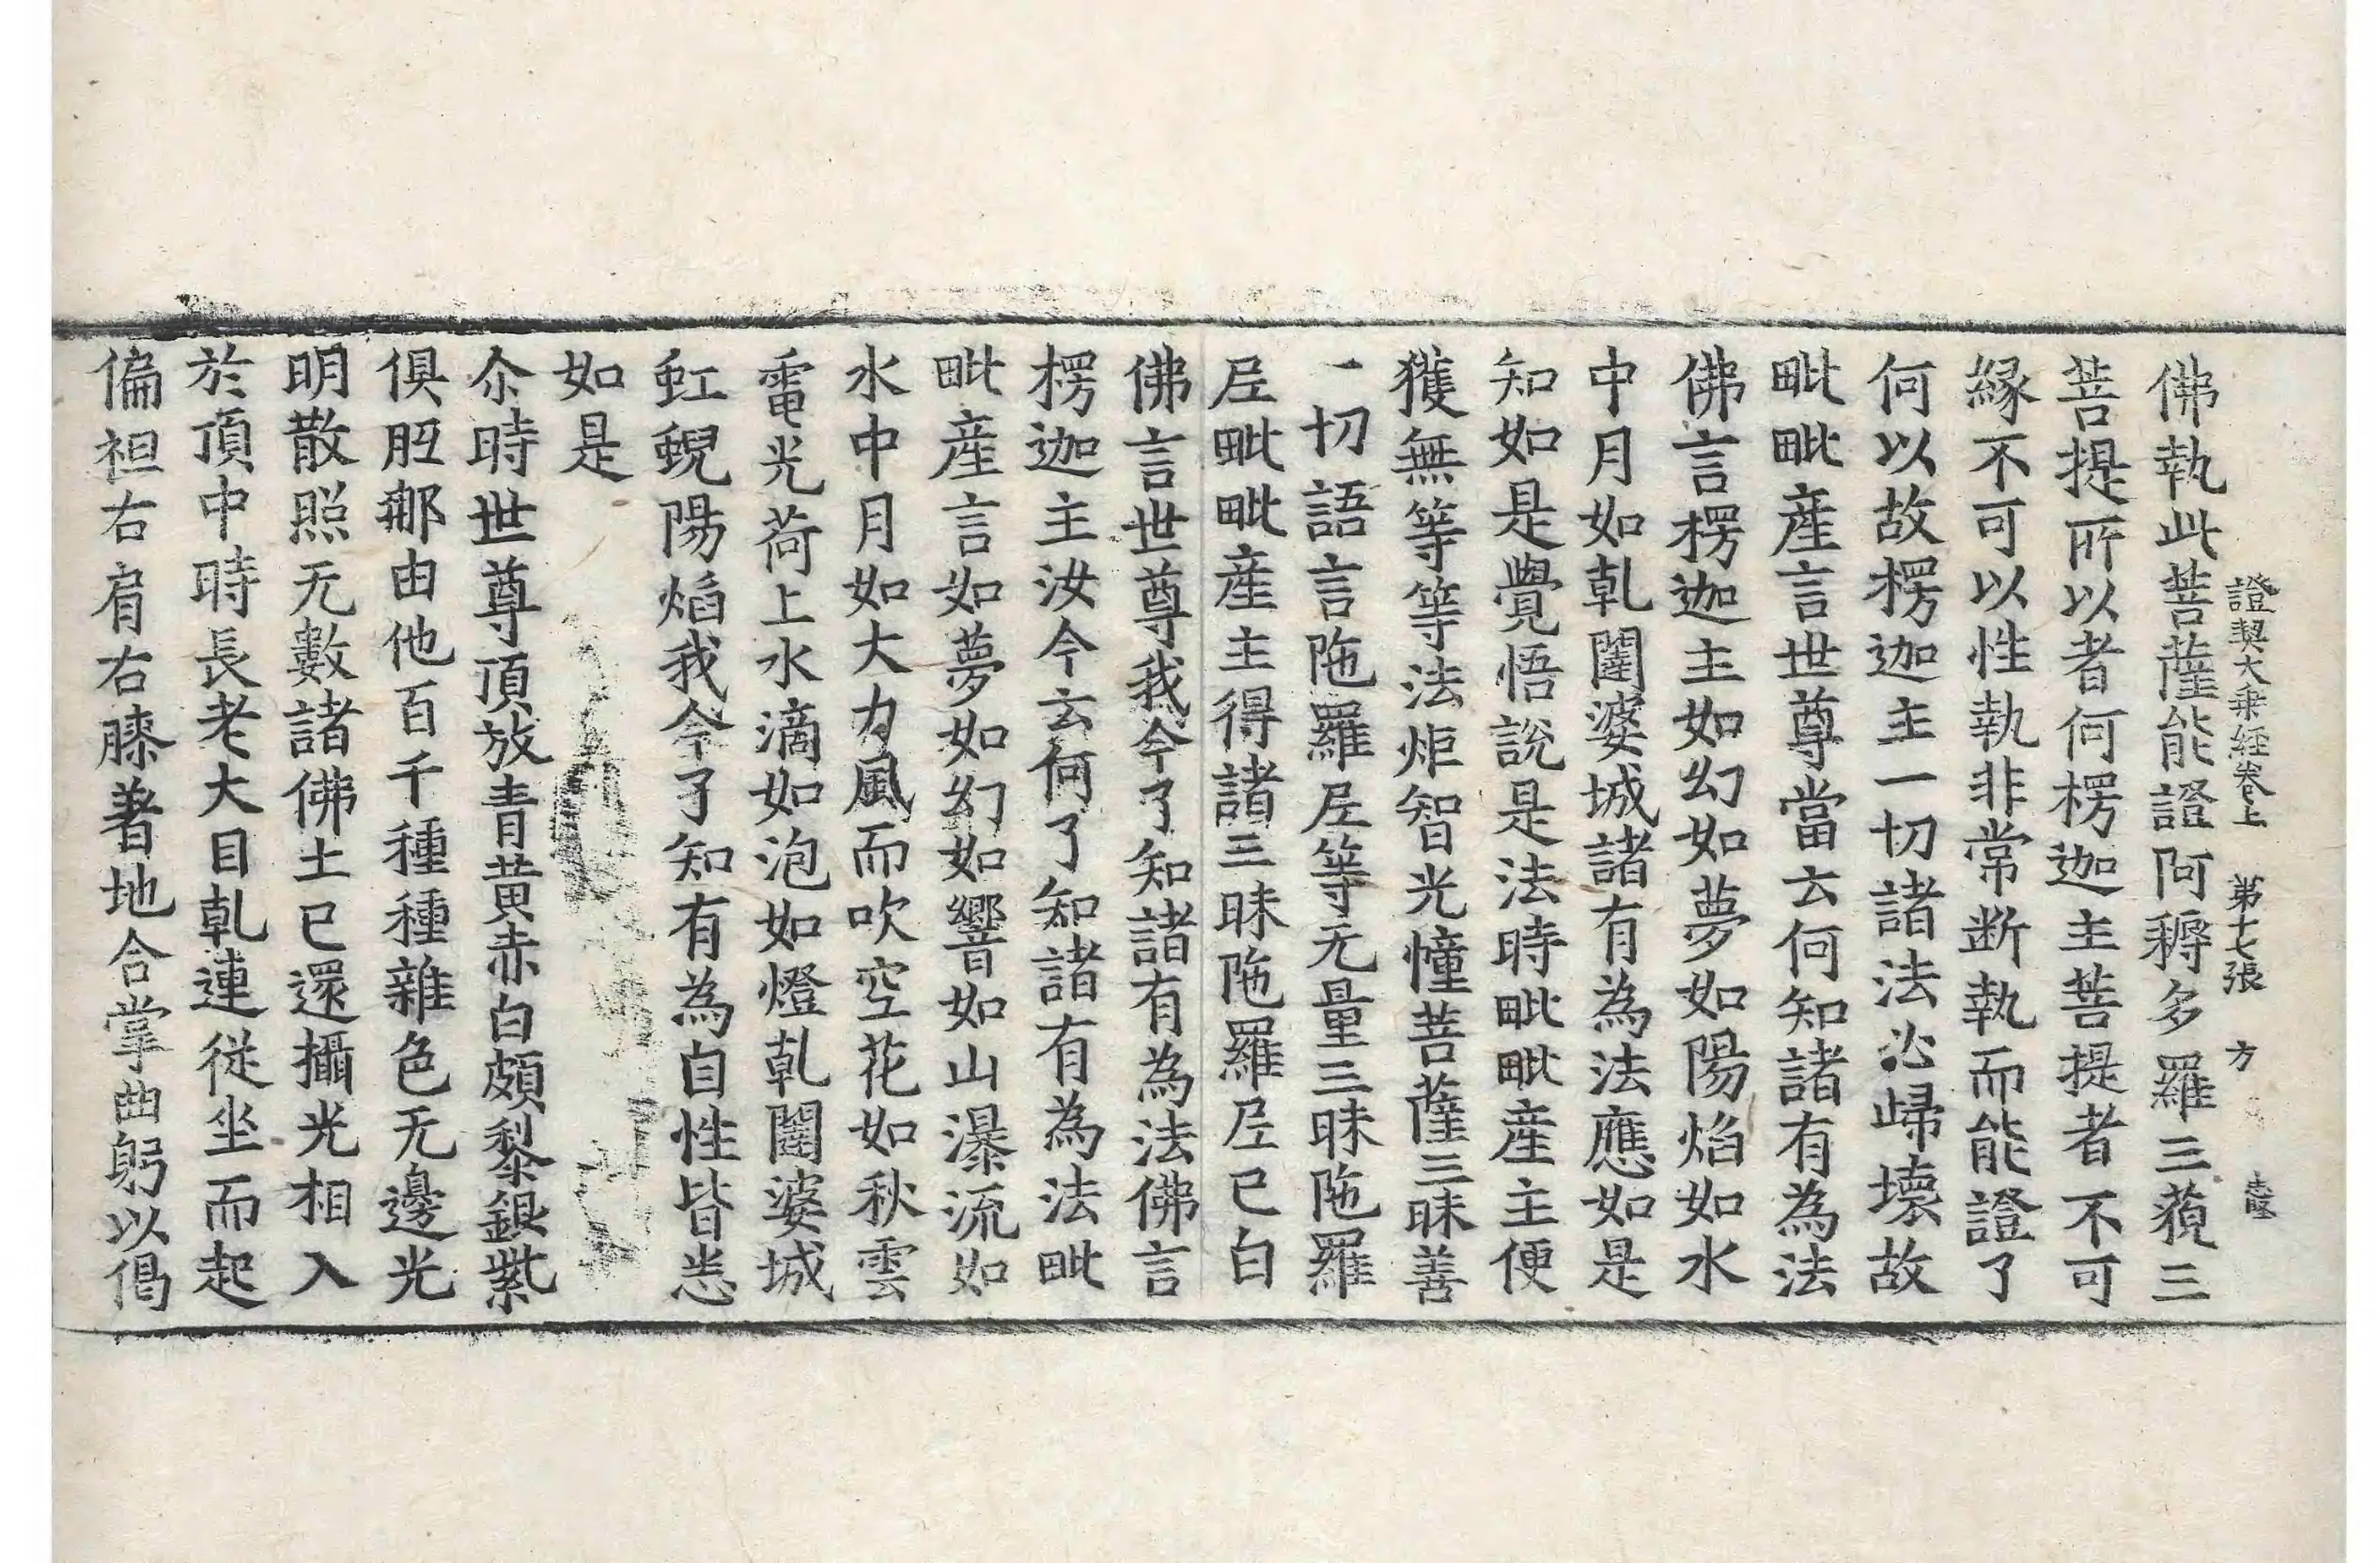 證契大乗経卷上 第十七張 方
佛執此菩薩能證阿耨多羅三藐三
菩提所以者何楞迦主菩提者不可
緣不可以性執非常断執而能證了
何以故楞迦主一切諸法必歸壞故
毗毗産言世尊當云何知諸有為法
佛言楞迦主如幻如夢如陽焰如水
中月如乹闥婆城諸有為法應如是
知如是覺悟說是法時毗毗産主便
獲無等等法炬智光憧菩薩三昧善
一切語言陁羅𡰱等无量三昧陁羅
𡰱毗毗産主得諸三昧陁羅𡰱已白
佛言世尊我今了知諸有為法佛言
楞迦主汝今云何了知諸有為法毗
毗産言如夢如幻如響如山瀑流如
水中月如大力風而吹空花如秋雲
電光荷上水滴如泡如燈乹闥婆城
虹蜺陽焰我今了知有為自性皆悉
如是
尒時世尊頂放青黄赤白頗黎銀紫
俱胝那由他百千種種雜色无邊光
明散照无數諸佛土已還攝光相入
於頂中時長老大目乹連從坐而起
偏袒右肩右膝著地合掌曲躬以偈